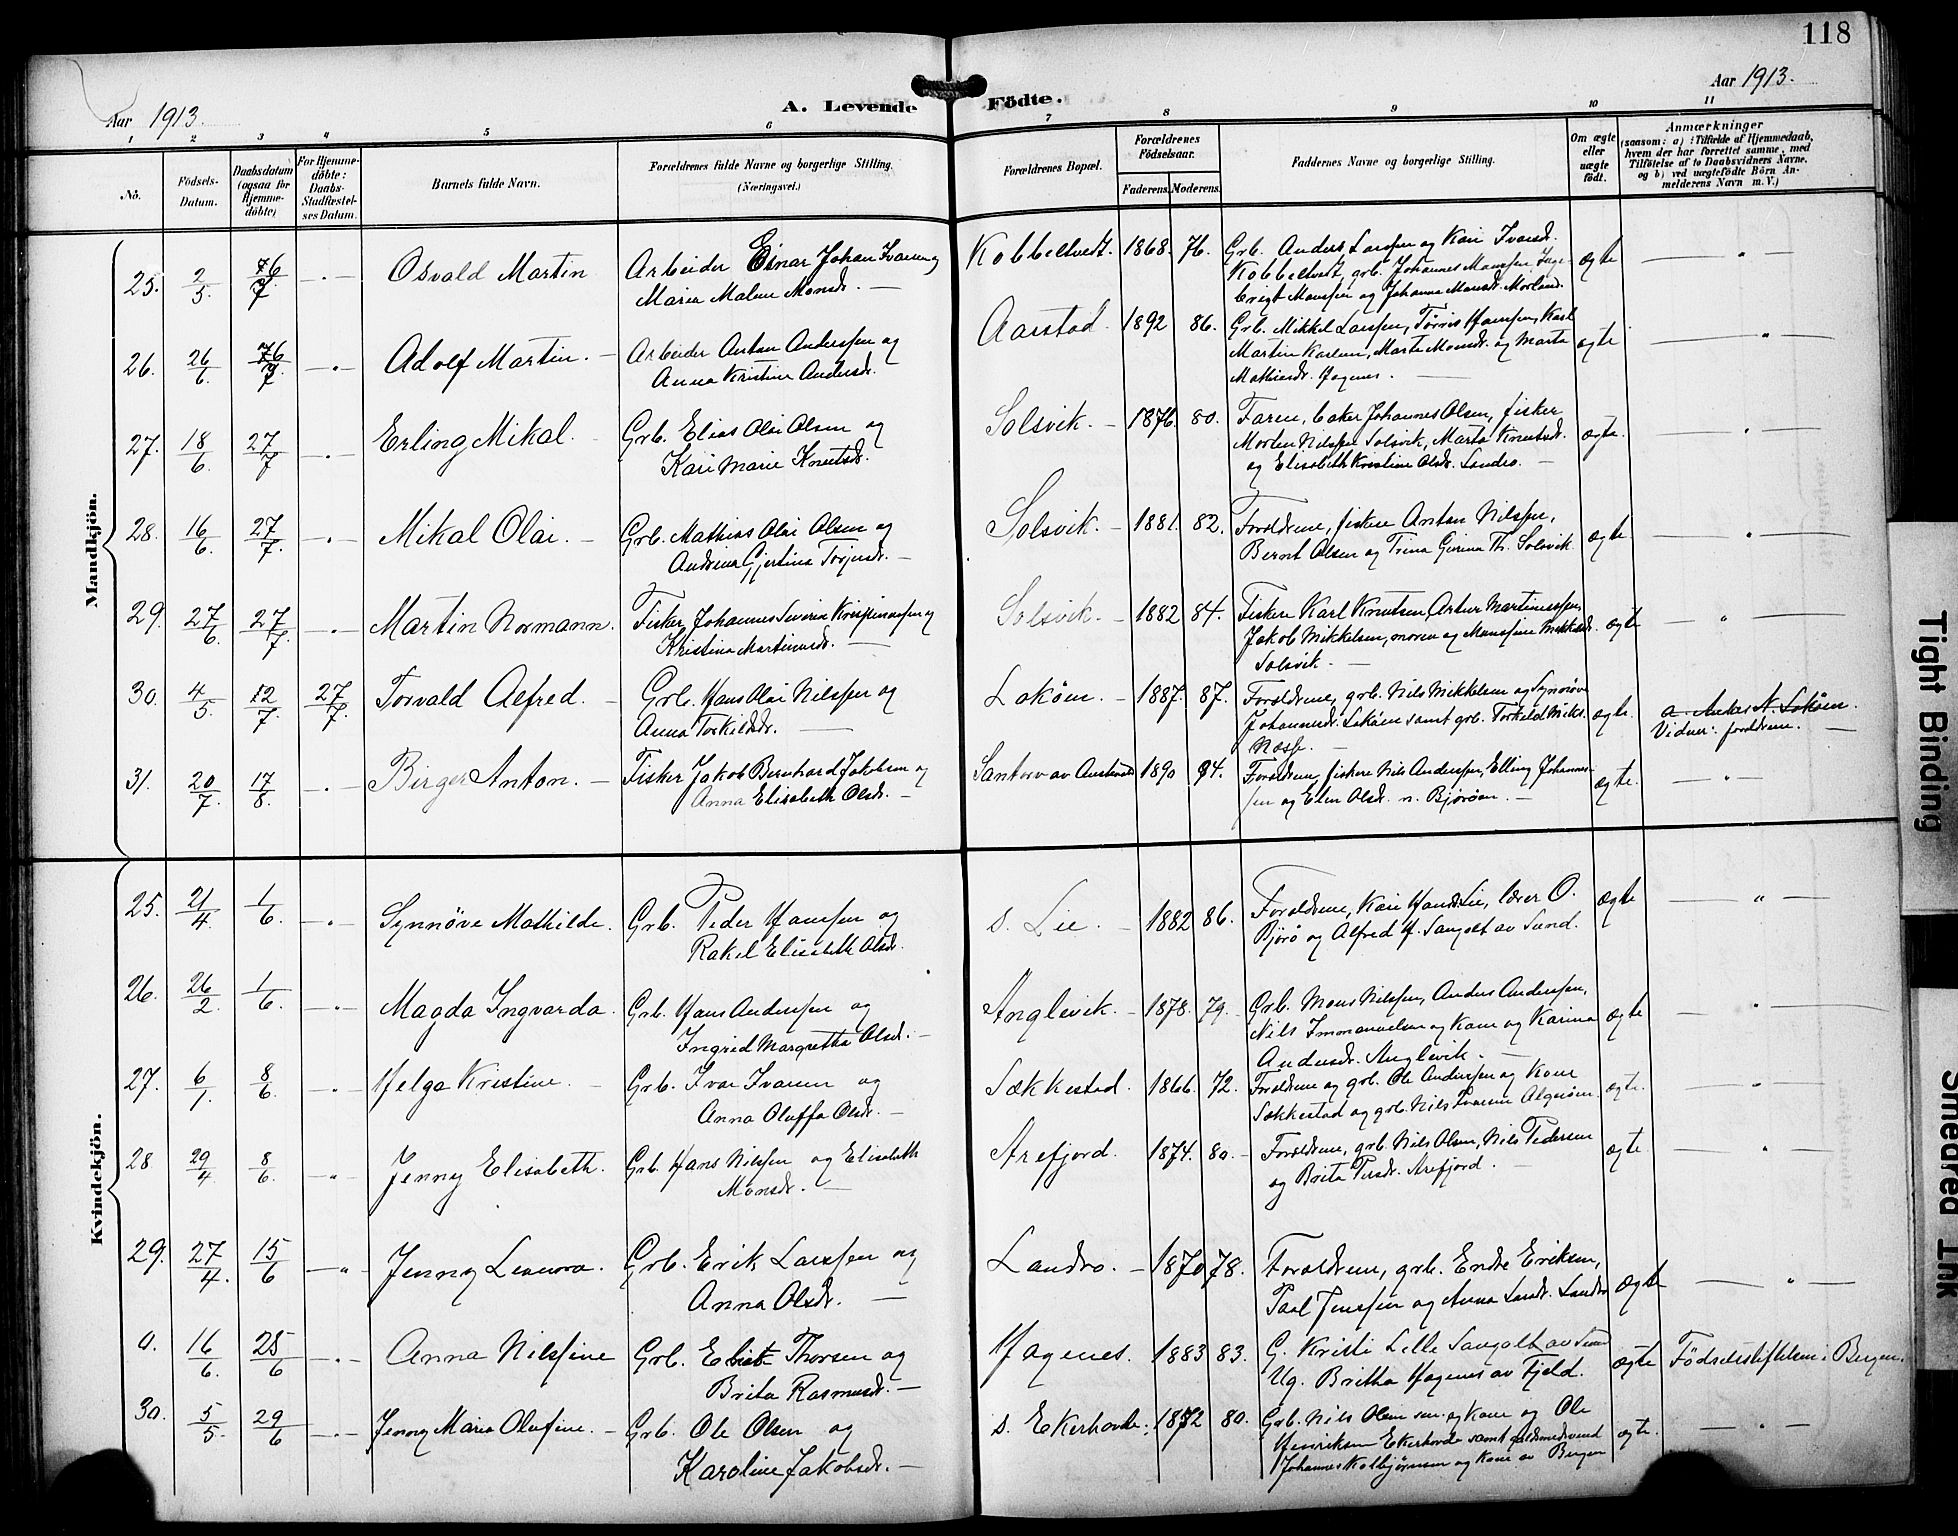 118
Aar 1913.
A. Levende Födte.
Aar 1913.
1 2 3 4 5 6 7 8 9 10 11
No.
Födsels-
Datum.
Daabsdatum
(ogsaa for
Hjemme-
döbte)
For Hjemme-
döbte:
Daabs-
Stadfæstel-
ses Datum.
Barnets fulde Navn.
Forældrenes fulde Navne og borgerlige Stilling.
(Næringsvei.)
Forældrenes Bopæl.
Forældrenes
Födselsaar.
Faderens. Moderens.
Faddernes Navne og borgerlige Stilling.
Om ægte
eller
uægte
födt.
Anmærkninger
(saasom: a) i Tilfælde af Hjemmedaab,
hvem der har forrettet samme, med
Tilföielse af to Daabsvidners Navne,
og b) ved uægtefödte Börn An-
melderens Navn m. V.)
Mandkjön.
25. 2/5. 7 — " — Osvald Martin Arbeider Einar Johan Ivarsen og
Maria Malene Monsdr. —
Kobbeltvedt. 1868. 76. Grb. Anders Larssen og Kari Ivarsd.
Kobbeltvedt, grb. Johannes Monssen, Inge-
brigt Monssen og Johanna Monsdr. Morland. ægte — " —
26. 26/6. 7 — " — Adolf Martin. — Arbeider Anton Anderssen og
Anna Kristine Andersdr.
Aarstad. 1892 86. Grb. Mikkel Larssen, Tørris Hanssen, Karl
Martin Karlsen, Marta Monsdr. og Marte
Mathiasdr. Hagenes. — ægte — " —
27. 18/6. 27/7 — " — Erling Mikal. — Grb. Elias Olai Olsen og
Kari Marie Knutsdr.
Solsvik. — 1876. 80. Faren, baker Johannes Olsen, fisker
Morten Nilssen Solsvik, Marta Knutsdr.
og Elisabeth Kristine Olsdr. Landro. — ægte. — " —
28. 16/6. 27/7. — " — Mikal Olai. — Grb. Mathias Olai Olsen og
Andrina Gjertina Torjersdr. —
Solsvik. — 1881. 82. Foreldrene, fiskere Anton Nilssen,
Bernt Olsen og Trina Gurina Th. Solsvik. ægte — " —
29. 27/6. 27/7. — " — Martin Normann. Fisker Johannes Severin Kristiansen og
Kristina Martinusdr. —
Solsvik. — 1882 84. Fiskere Karl Knutsen, Artur Martinussen,
Jakob Mikkelsen, moren og Monssine Mikkelsdr.
Solsvik. — ægte — " —
30. 4/5. 12/7. 27/7. Torvald Alfred. — Grb. Hans Olai Nilssen og
Anna Torkildsdr. —
Lokøen. — 1887. 87. Foreldrene, grb. Nils Mikkelsen og Synnøve
Johannesdr. Lokøen samt grb. Torkild Miks.
Nesse. — ægte. a. Anders N. Lokøen.
Vidner: foreldrene. —
31. 20/7. 17/8. — " — Birger Anton. — Fisker Jakob Bernhard Jakobsen og
Anna Elisabeth Olsdr. —
Santorv av Austevold 1890 94. Foreldrene, fiskere Nils Anderssen, Elling Johannes-
sen og Elen Olsdr. n. Bjørøen. — ægte. — " —
Kvindekjön.
25. 21/4. 1/6. — " — Synnöve Mathilde. Grb. Peder Hanssen og
Rakel Elisabeth Olsdr.
s. Lie. — 1882 86. Foreldrene, Kari Hansdr. Lie, lærer O.
Bjørø og Alfred H. Sangolt av Sund. ægte — " —
26. 26/2 1/6. — " — Magda Ingvarda. Grb. Hans Anderssen og
Ingrid Margretha Olsdr. —
Anglevik. — 1878. 79. — Grb. Mons Nilssen, Anders Anderssen,
Nils Immanuelsen og Kone og Karina
Andersdr. Anglevik. — ægte — " —
27. 6/1. 8/6. — " — Helga Kristine. — Grb. Ivar Ivarsen og
Anna Oluffa Olsdr. —
Sekkestad. 1866. 72. Foreldrene og grb. Ole Anderssen og Kone
Sekkestad og grb. Nils Ivarsen Algerøen. ægte. — " —
28 29/4. 8/6. — " — Jenny Elisabeth. Grb. Hans Nilssen og Elisabeth
Monsdr. —
Arefjord. 1874. 80. — Foreldrene, grb. Nils Olsen, Nils Pedersen
og Brita Persdr. Arefjord. — ægte — " —
29. 27/4. 15/6 — " — Jenny Leanora. Grb. Erik Larssen og
Anna Olsdr. —
Landro. — 1870 78. Foreldrene, grb. Endre Eriksen,
Paal Jenssen og Anna Larsdr. Landro ægte — " —
0. 16/6. 25/6 — " — Anna Nilssine Grb. Thorsen og
Brita Rasmusdr. —
Hagenes. 1883 83. G. Kristi Lille Sangolt av Sund
Ug. Britha Hagenes av Fjeld. ægte Födselsstiftelsen i Bergen.
30. 5/5. 29/6 — " — Jenny Maria Olufine. — Grb. Ole Olsen og
Karoline Jakobsdr. —
s. Ekerhovde: 1872 80. Grb. Nils Olsen sen. og Kone og Ole
Henriksen Ekerhovde samt
Johannes Kolbjørnsen og Kone av Bergen ægte. — " —
Tight Binding
Smeared Ink